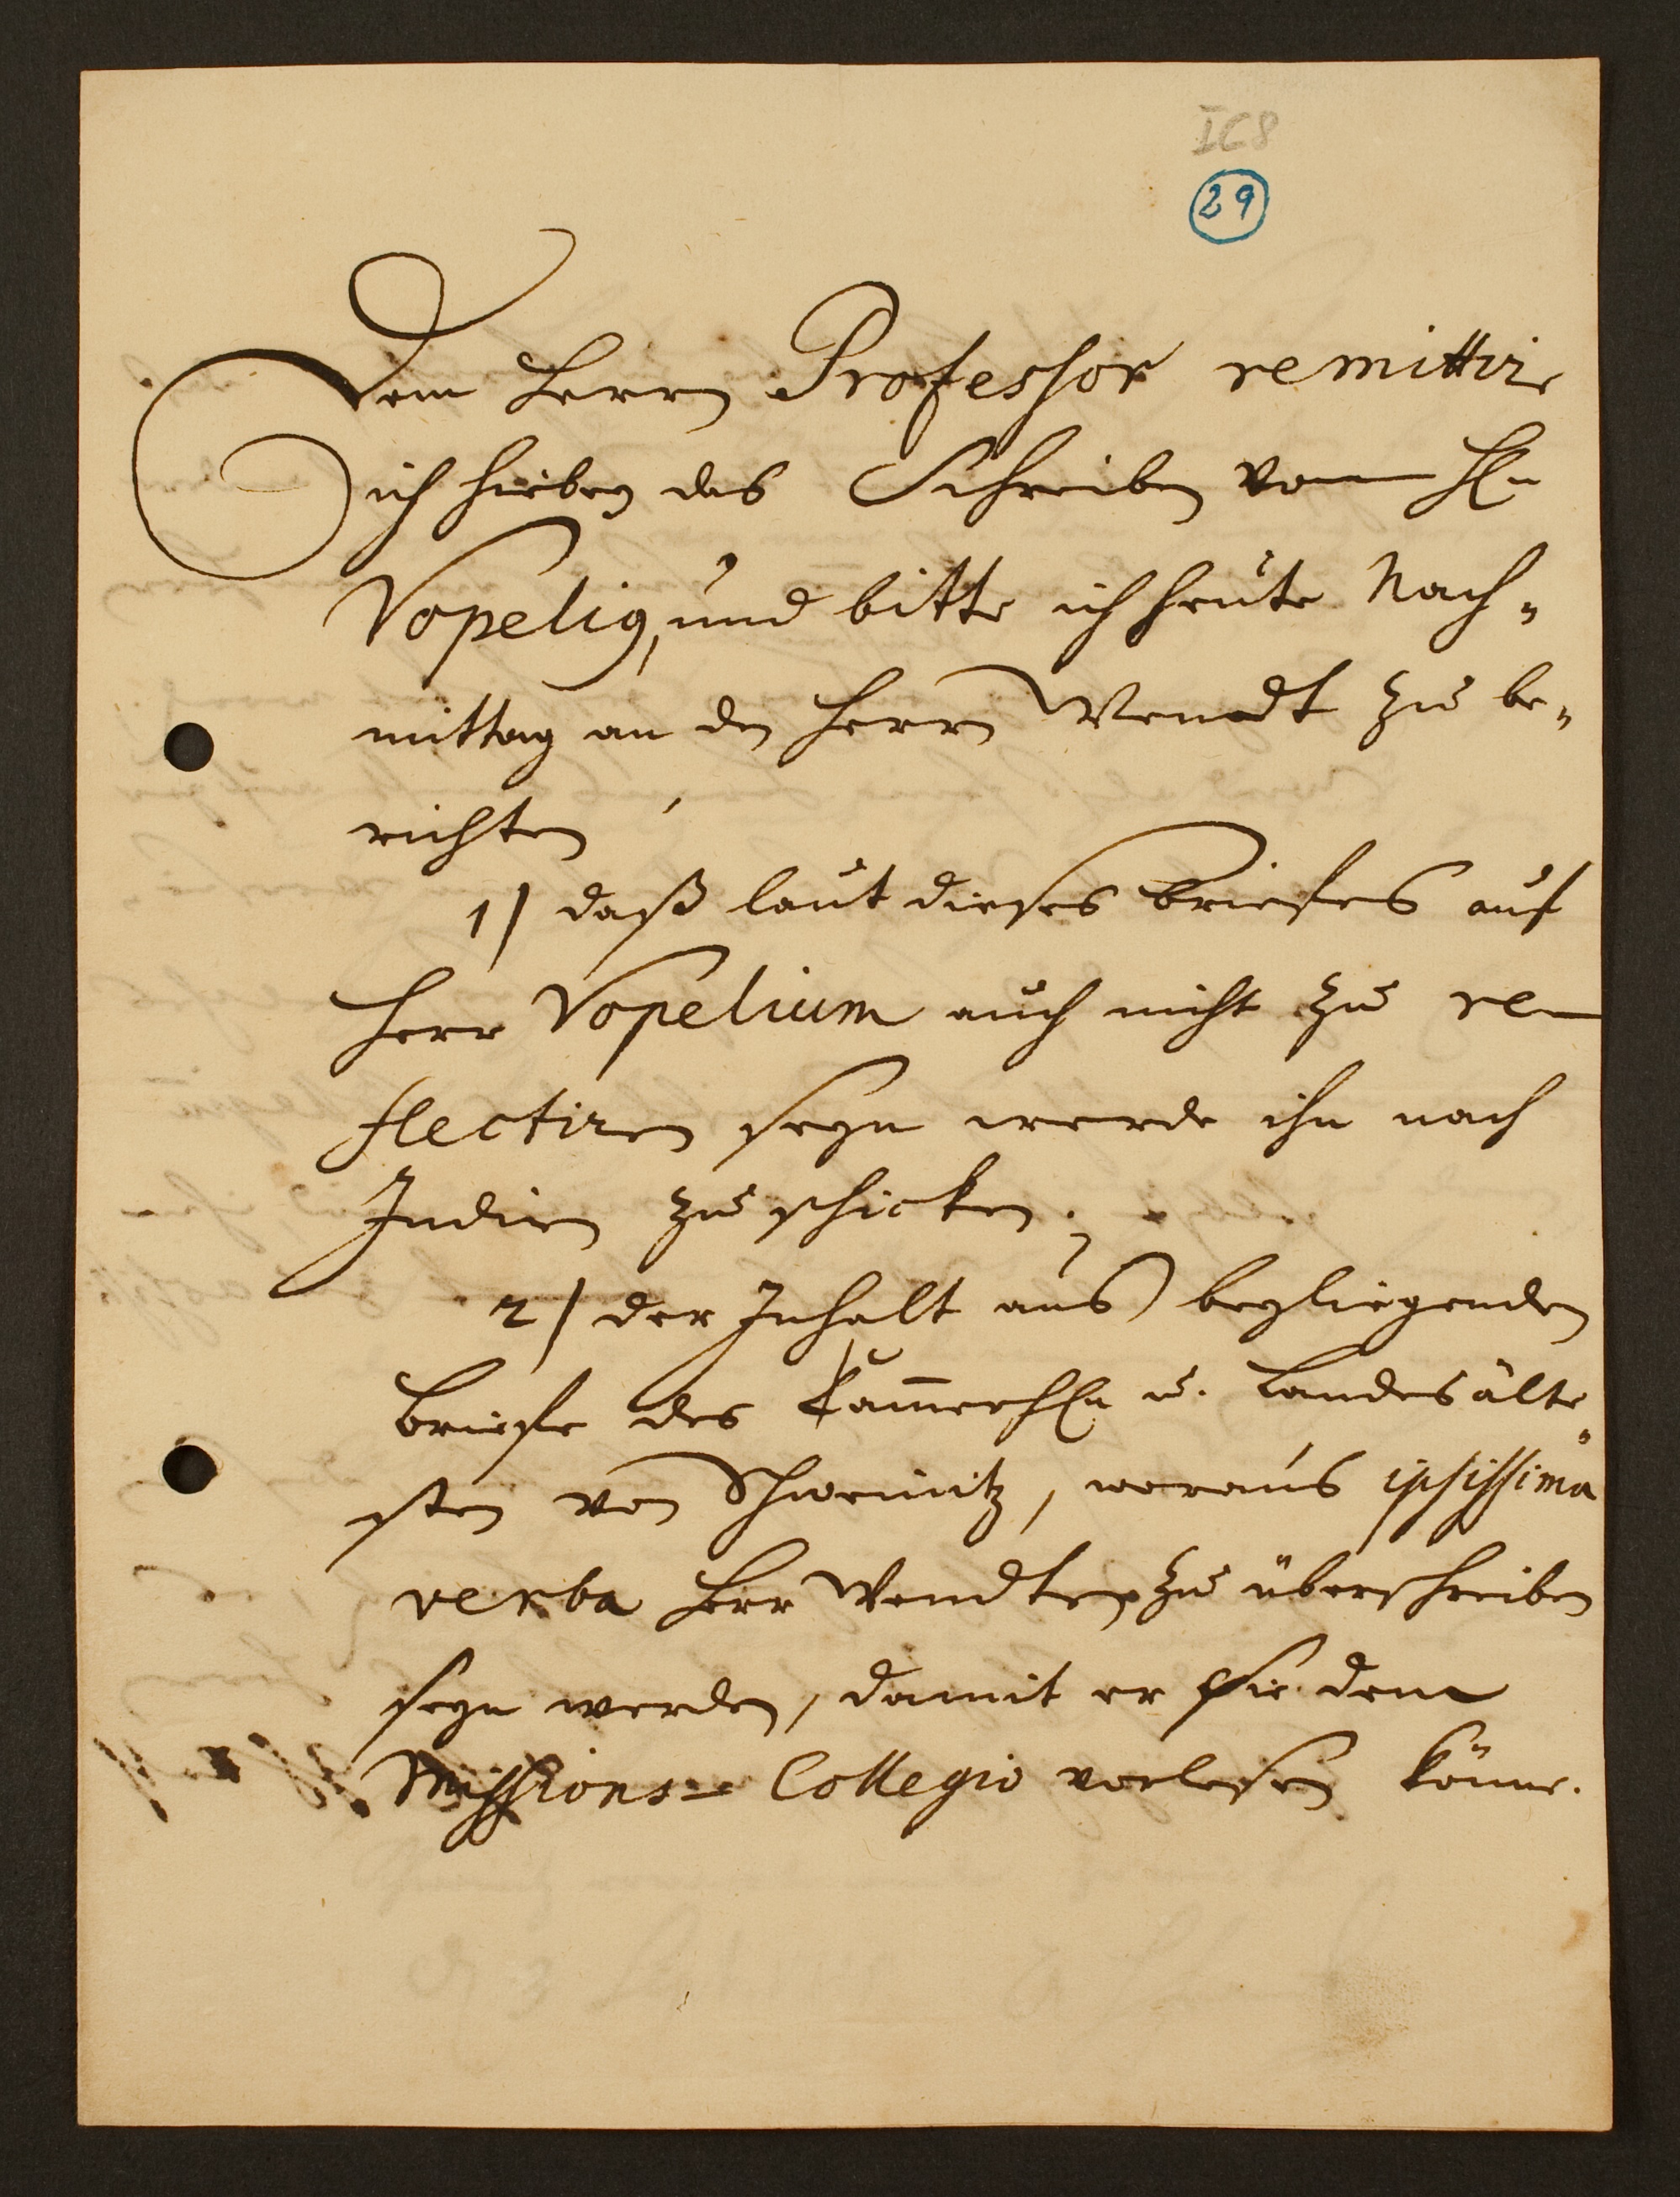 IC8
29
Dem Herrn Professor remittire
ich hiebey das Schreiben vom HEn
Vopelig, und bitte ich heute Nach-
mittag an den Herrn Wendt zu be-
richten,
1) daß laut dieses Briefes auf
Herr Vopelium auch nicht zu re-
flectiren seyn werde ihn nach
Indien zu schicken;
2) der Inhalt aus beyliegenden
Briefe des Kam̄erhEn u. Landesälte-
sten von Schweinitz, woraus ipsissima
verba Herr Wendten zu überschreiben
seyn werden, damit er sie dem
Missions-Collegio vorlesen könne.